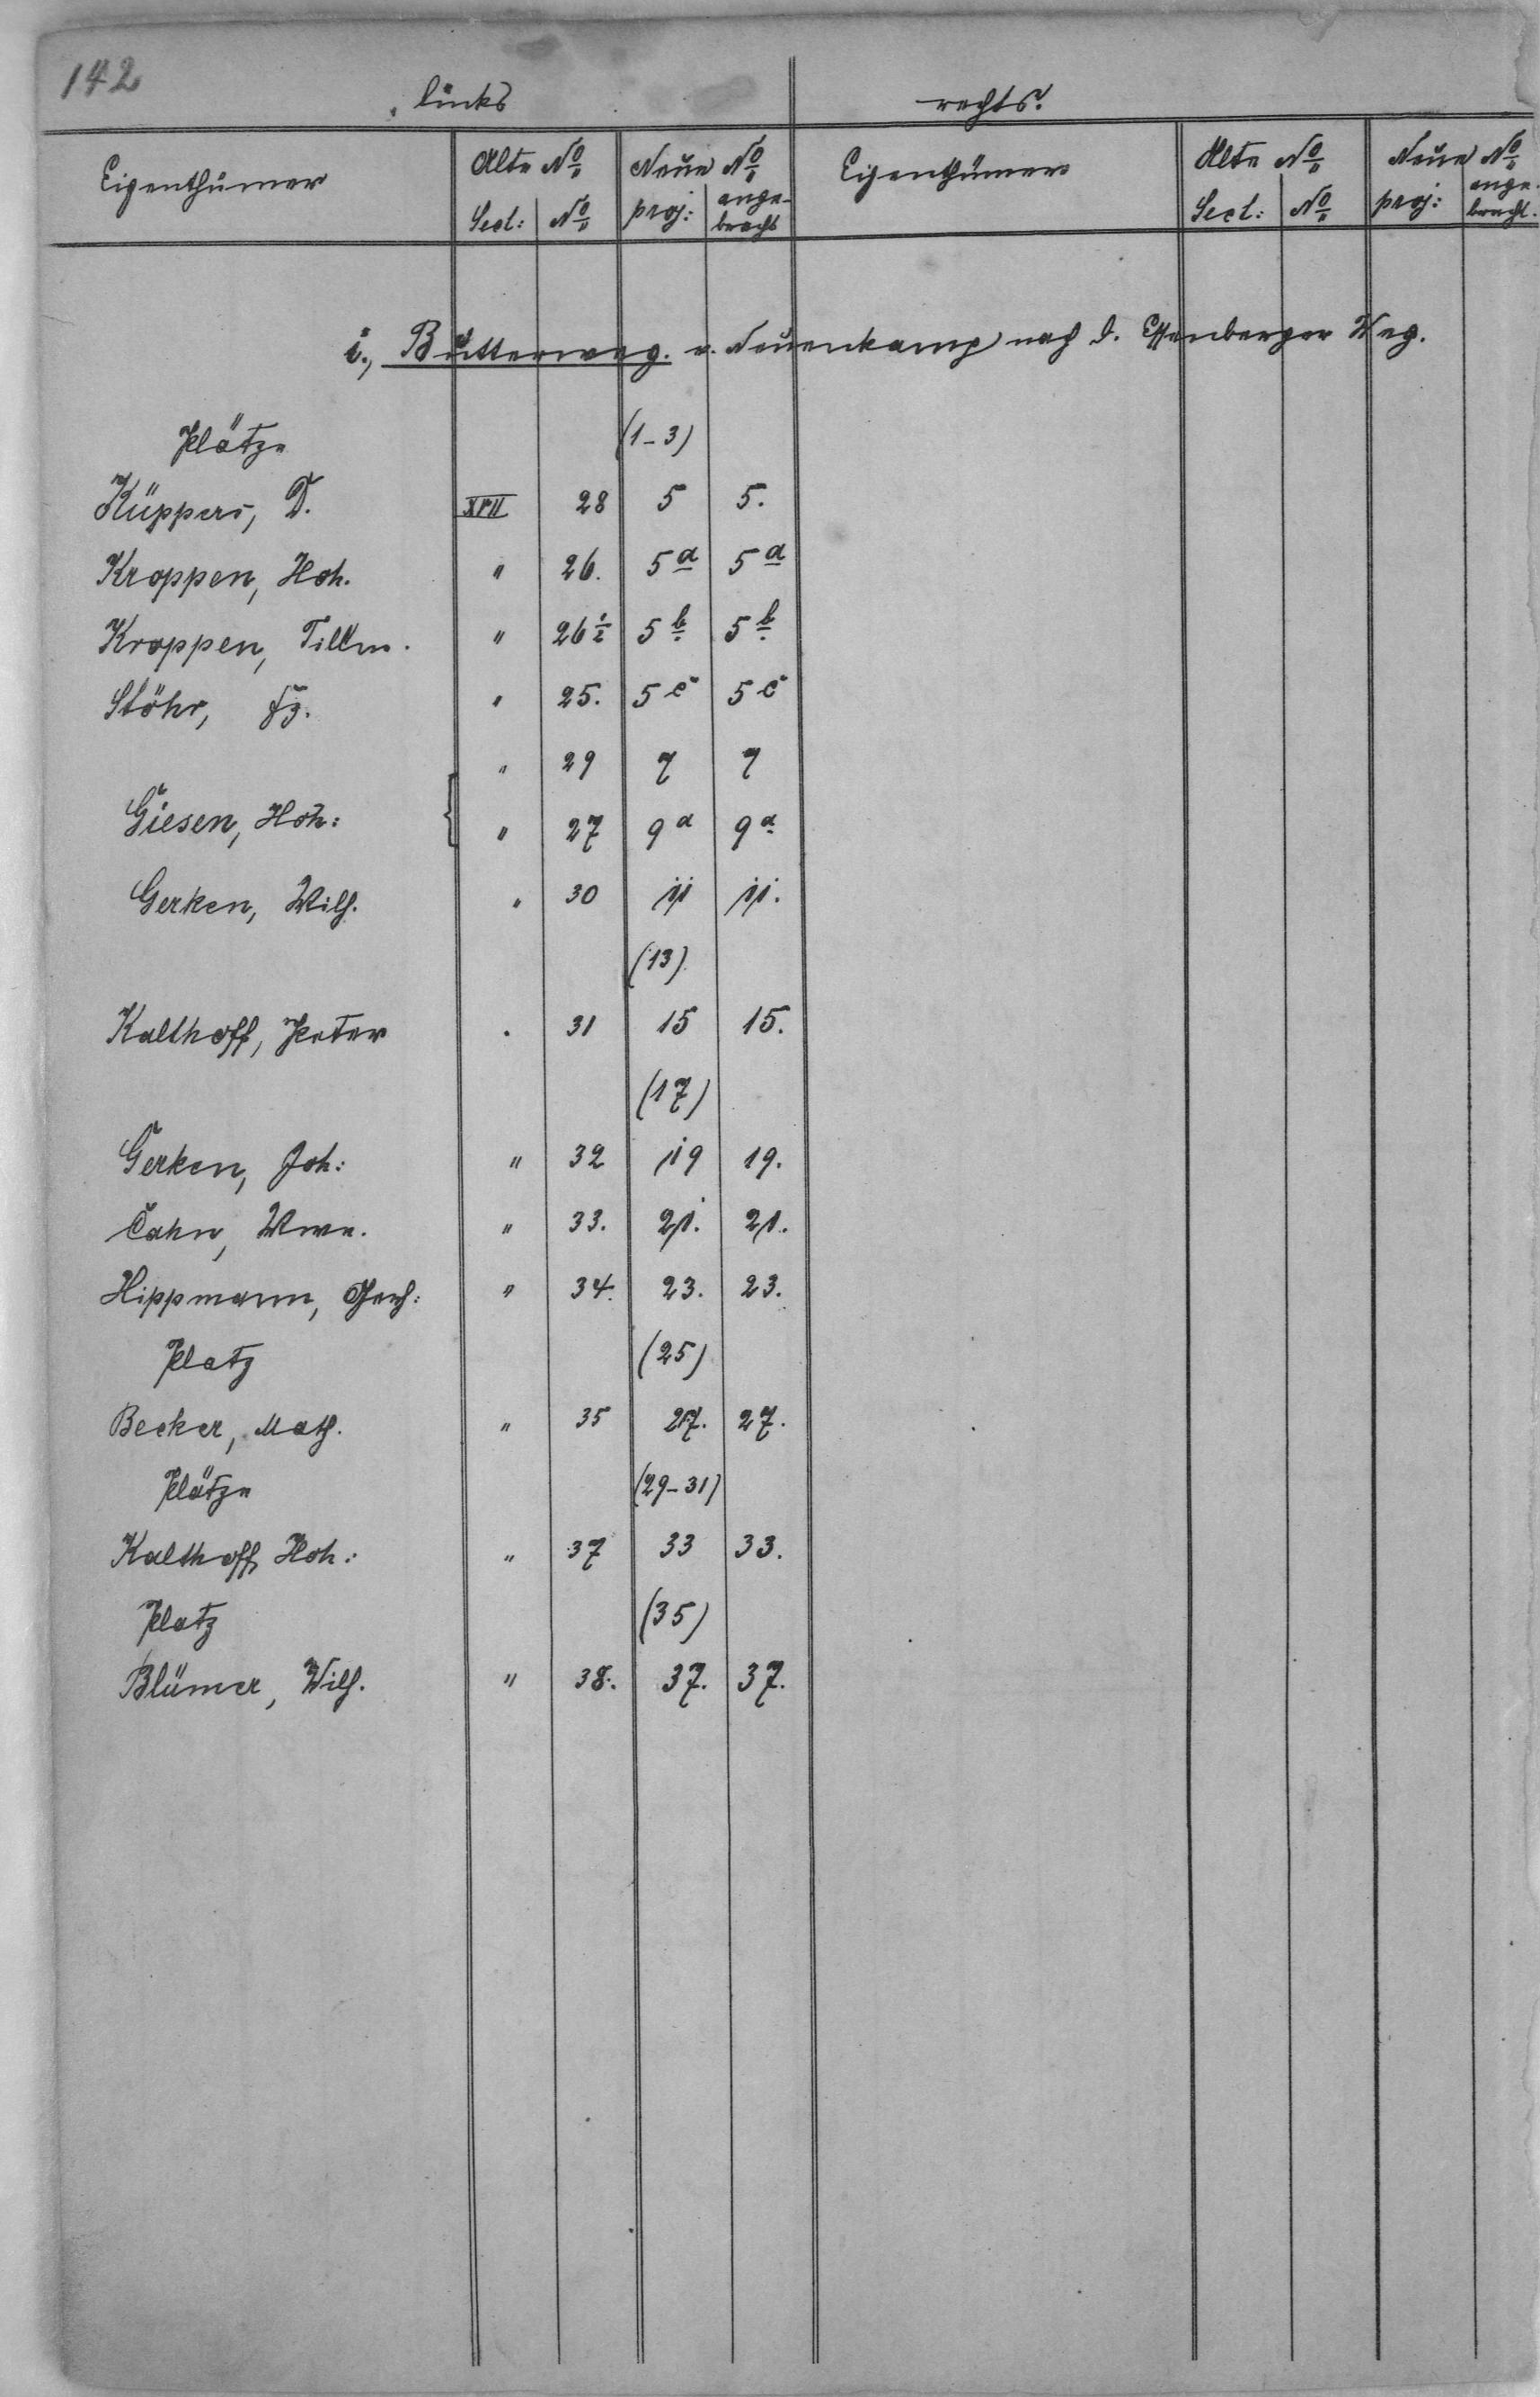 142
links
rechts.
Eigenthümer Alte No Neue No Eigenthümer Alte No Neue No
Sect: No proj: ange- Sect: No proj: ange-
bracht bracht.
i., Butterweg. v. Neuenkamp nach d. Essenberger Weg.
Plätze (1-3)
Küppers, D. XVII 28 5 5.
Kroppen, Hch. " 26. 5a 5a
Kroppen, Tillm. " 26½ 5b 5b
Stöhr, Fz. " 25. 5c 5c
" 29 7 7
Giesen, Hch: { " 27 9a 9a
Gerken, Wilh. " 30 11 11.
(13)
Kalthoff, Peter " 31 15 15.
(17)
Gerken, Joh: " 32 19 19.
Cahn, Wwe. " 33. 21. 21.
Hippmann, Gerh: " 34. 23. 23.
Platz (25)
Becker, Math. " 35 27. 27.
Plätze (29-31)
Kalthoff Hch: " 37 33 33.
Platz (35)
Blümer, Wilh. " 38. 37. 37.